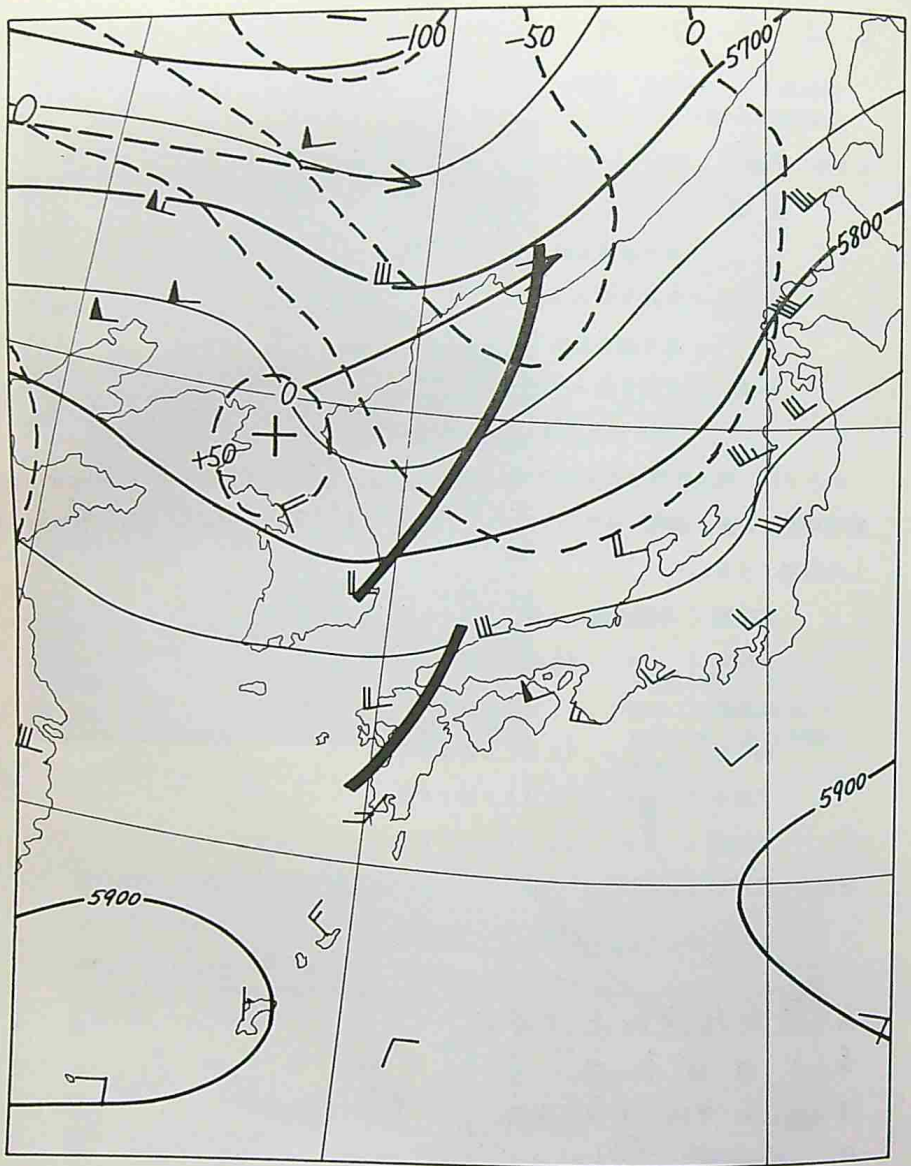 -100
-50
0
5700
0
5800
0
+50
5900
5900